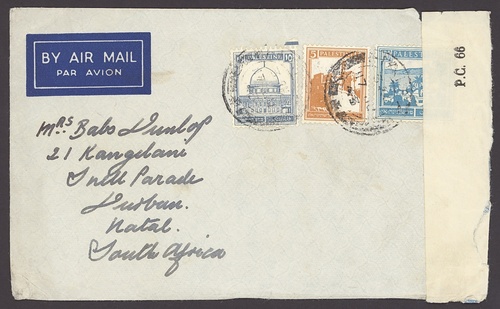 BY AIR MAIL
PAR AVION
PALESTINE
PALESTINE
P.C. 66
Mrs Babs Dunlop
21 Kangelani
Snell Parade
Durban.
Natal.
South Africa